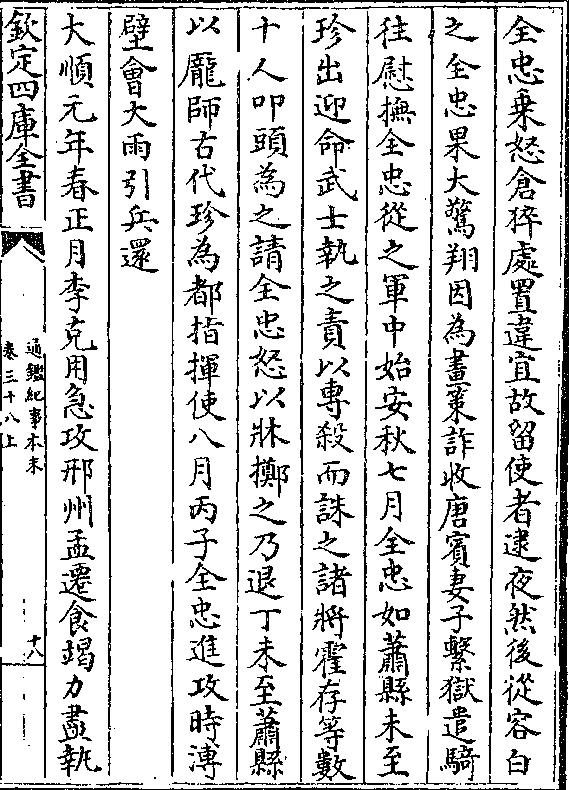 全忠乗怒倉猝處置違宜故留使者逮夜然後從容白
之全忠果大驚翔因為畫策詐收唐賓妻子繫獄遣騎
往慰撫全忠從之軍中始安秋七月全忠如蕭縣未至
珍出迎命武士執之責以專殺而誅之諸將霍存等數
十人叩頭為之請全忠怒以牀擲之乃退丁未至蕭縣
以龐師古代珍為都指揮使八月丙子全忠進攻時溥
壁會大雨引兵還
大順元年春正月李克用急攻邢州孟遷食竭力盡執
欽定四庫全書
通鑑紀事本末
卷三十八上
十八